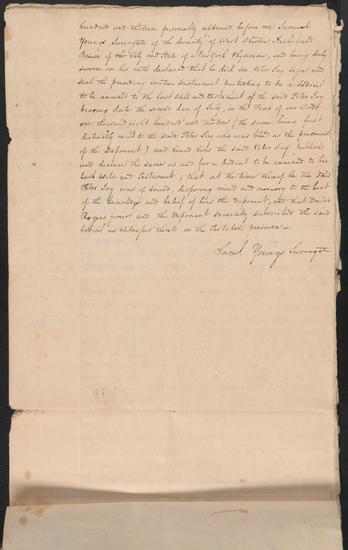 hundred and thirteen personally appeared before me Samuel
Youngs Surrogate of the County of West Chester, Archibald
Bruce of the City and State of New York Physician, and being duly
sworn on his oath declared that he did see Peter Jay sign and
seal the preceding written Instrument purporting to be a Codicil
to be annexed to the last Will and testament of the said Peter Jay
bearing date the second day of July, in the Year of our Lord
one thousand eight hundred and thirteen (the same being first
distinctly read to the said Peter Jay who was blind in the presence
of the Deponent) and heard him the said Peter Jay publish
and declare the same as and for a Codicil to be annexed to his
last Will and Testament, that at the time thereof he the said
Peter Jay was of sound, disposing mind and memory to the best
of the knowledge and belief of him the Deponent, and that David
Rogers junior and the Deponent severally subscribed the said
Codicil as Witnesses thereto in the Testators presence —
Saml. Youngs Surrogate